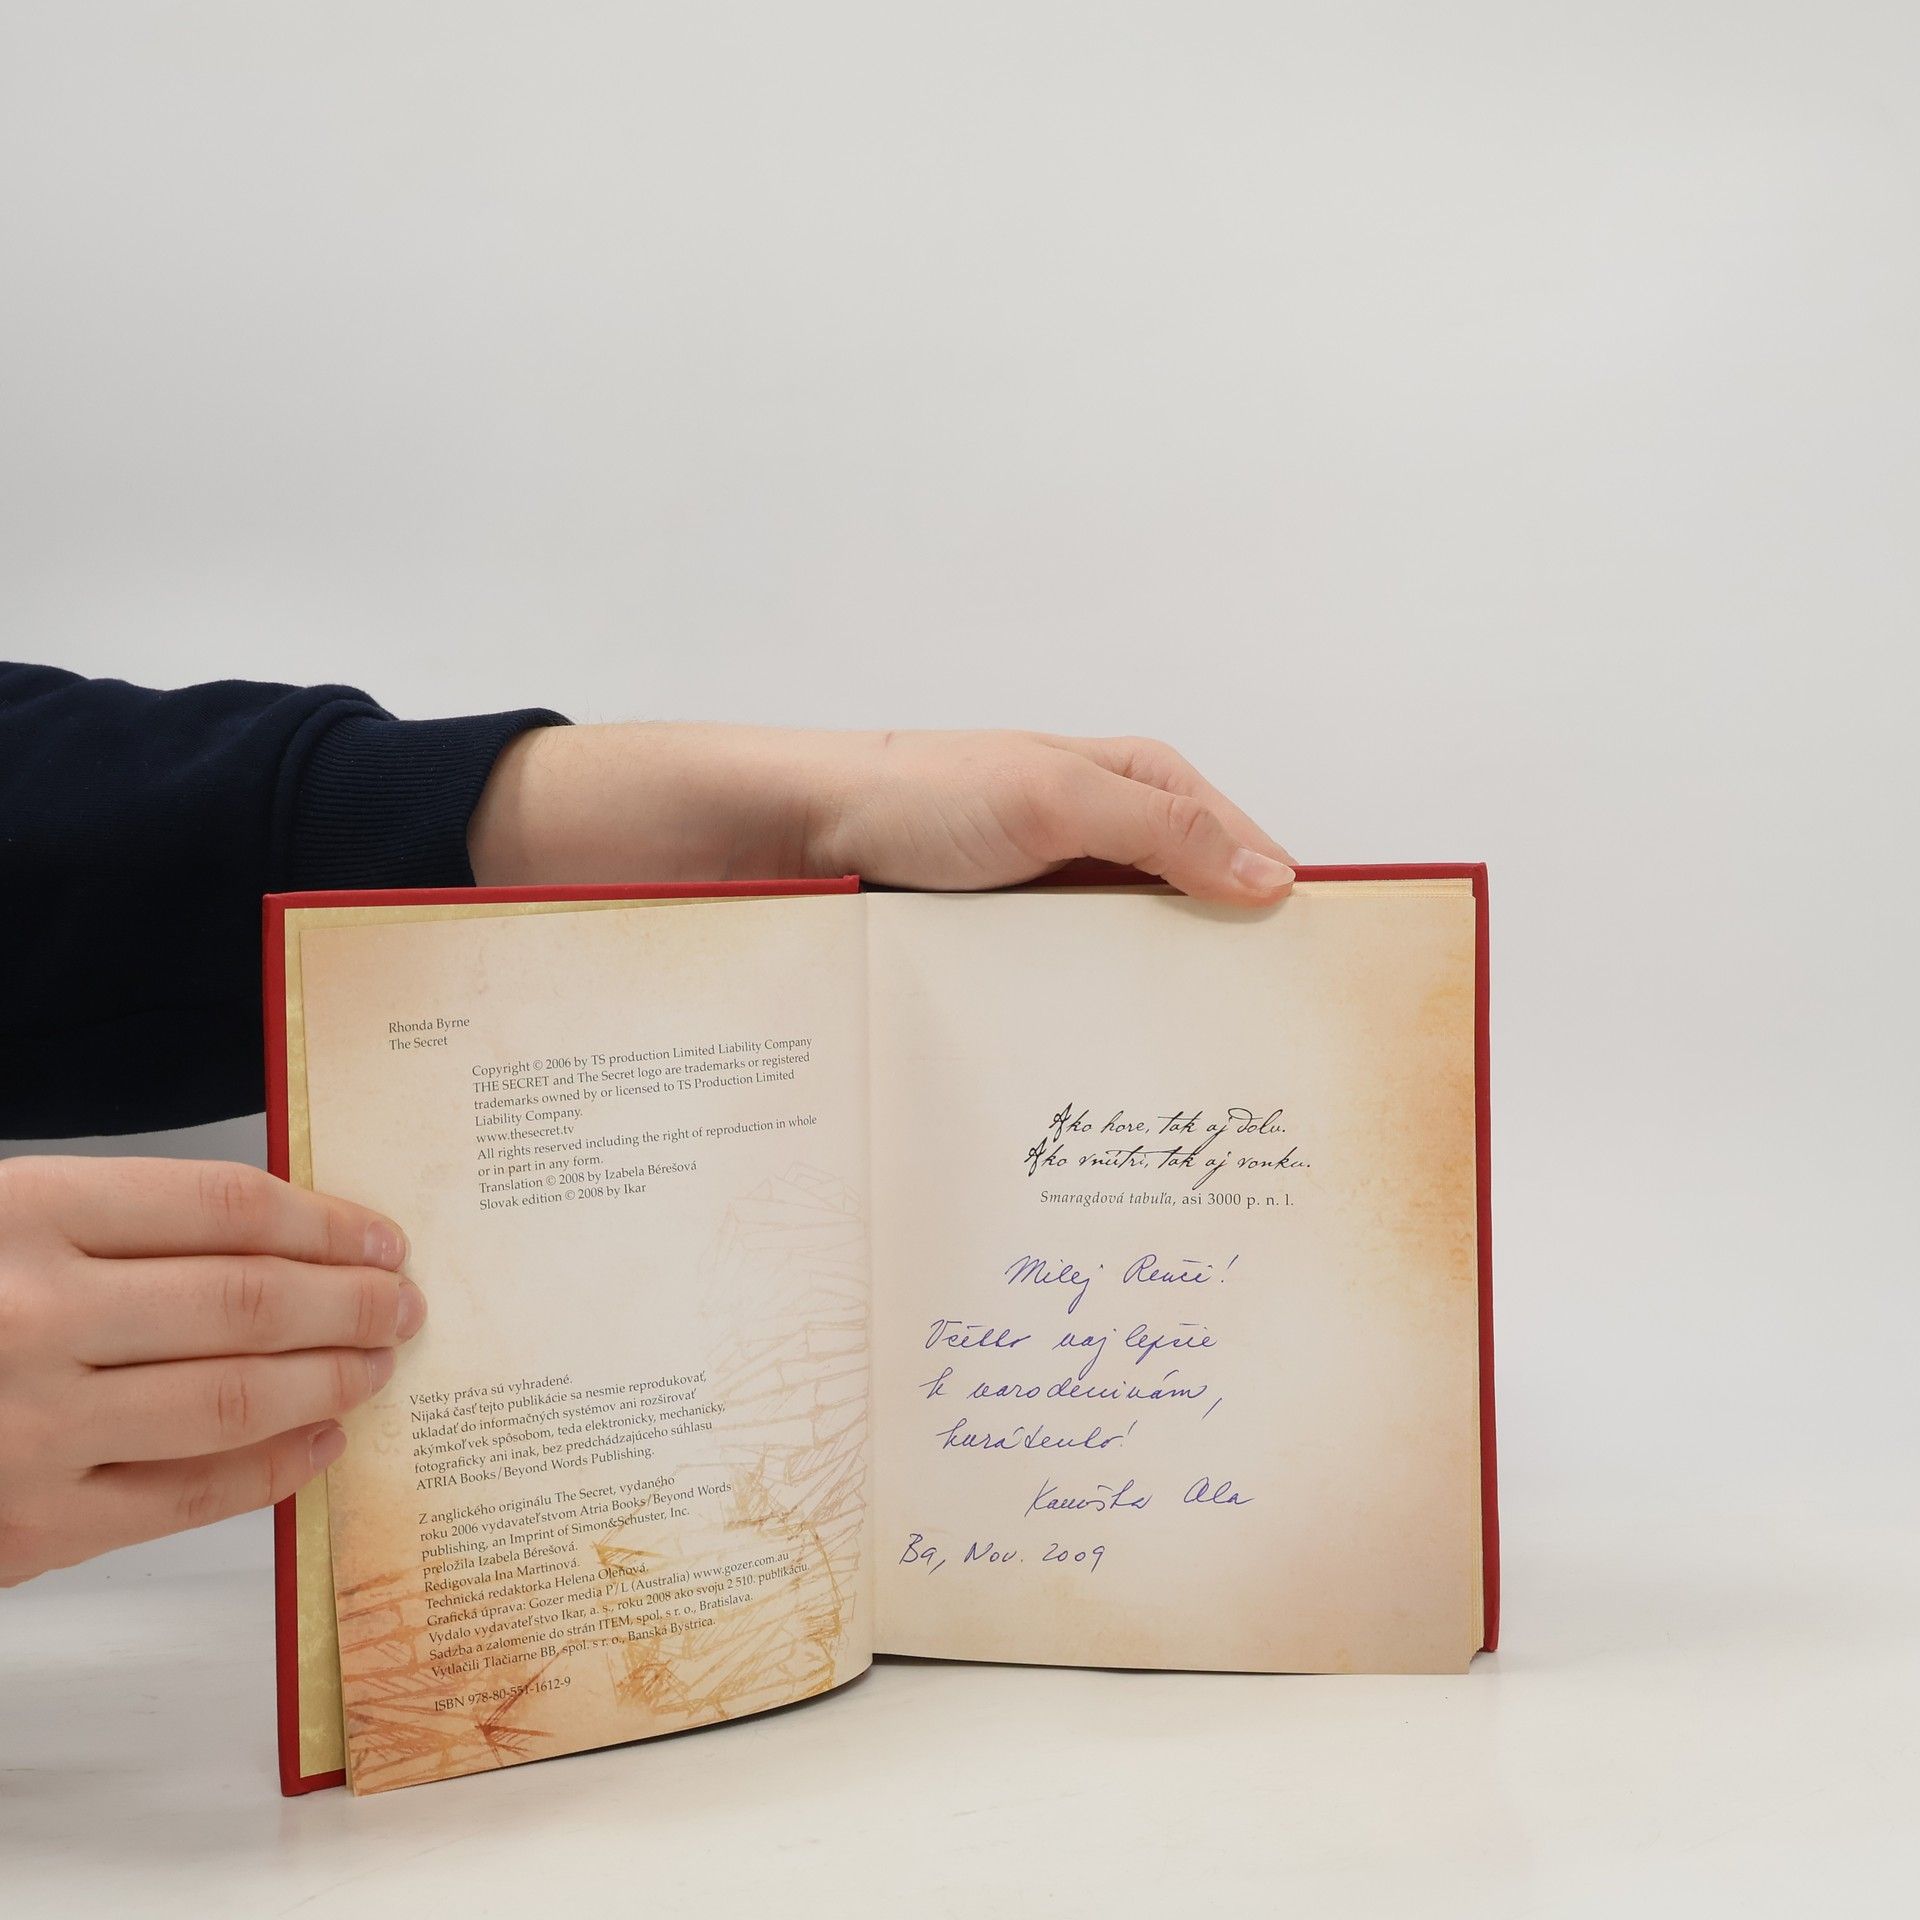 Rhonda Byrne
The Secret
Copyright © 2006 by TS production Limited Liability Company
THE SECRET and The Secret logo are trademarks or registered
trademarks owned by or licensed to TS Production Limited
Liability Company.
www.thesecret.tv
All rights reserved including the right of reproduction in whole
or in part in any form.
Translation © 2008 by Izabela Bérešová
Slovak edition © 2008 by Ikar
Všetky práva sú vyhradené.
Nijaká časť tejto publikácie sa nesmie reprodukovať,
ukladať do informačných systémov ani rozširovať
akýmkoľvek spôsobom, teda elektronicky, mechanicky,
fotograficky ani inak, bez predchádzajúceho súhlasu
ATRIA Books/Beyond Words Publishing.
Z anglického originálu The Secret, vydaného
roku 2006 vydavateľstvom Atria Books/Beyond Words
publishing, an Imprint of Simon&Schuster, Inc.
preložila Izabela Bérešová.
Redigovala Ina Martinová.
Technická redaktorka Helena Oleňová.
Grafická úprava: Gozer media P/L (Australia) www.gozer.com.au
Vydalo vydavateľstvo Ikar, a. s., roku 2008 ako svoju 2 510. publikáciu.
Sadzba a zalomenie do strán ITEM, spol. s r. o., Bratislava.
Vytlačili Tlačiarne BB, spol. s r. o., Banská Bystrica.
ISBN 978-80-551-1612-9
Ako hore, tak aj dolu.
Ako vnútri, tak aj vonku.
Smaragdová tabuľa, asi 3000 p. n. l.
Milej Renči!
Všetko najlepšie
k narodeninám,
Ala
Ba, Nov. 2009